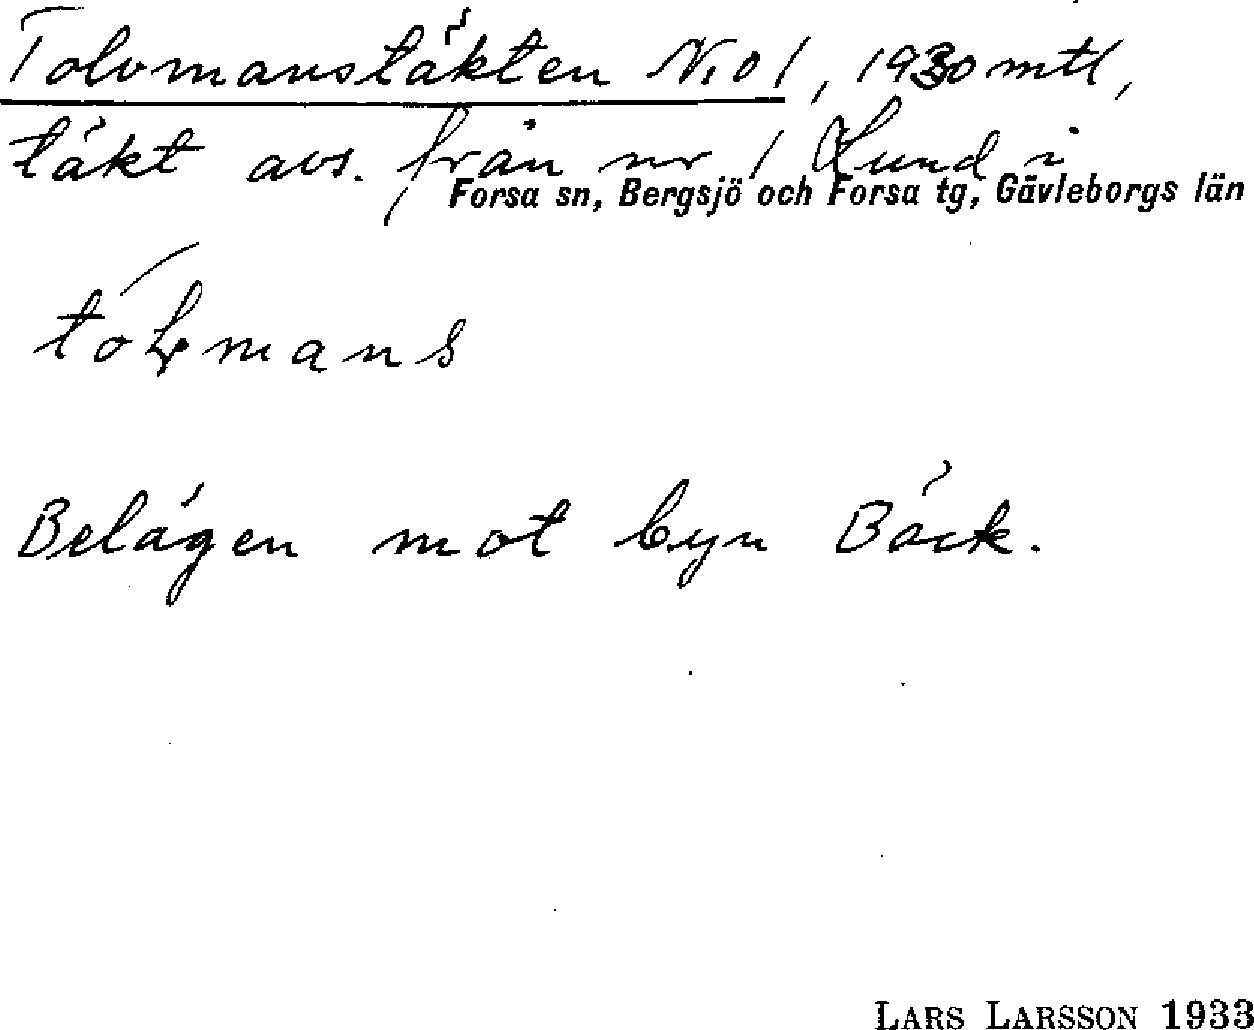 Tolvmanstäkten N:o 1, 1930 mtl,
täkt avs. från nr 1 Lund i
Forsa sn, Bergsjö och Forsa tg, Gävleborgs län
mans
Belägen mot byn Bäck.
LARS LARSSON 1933